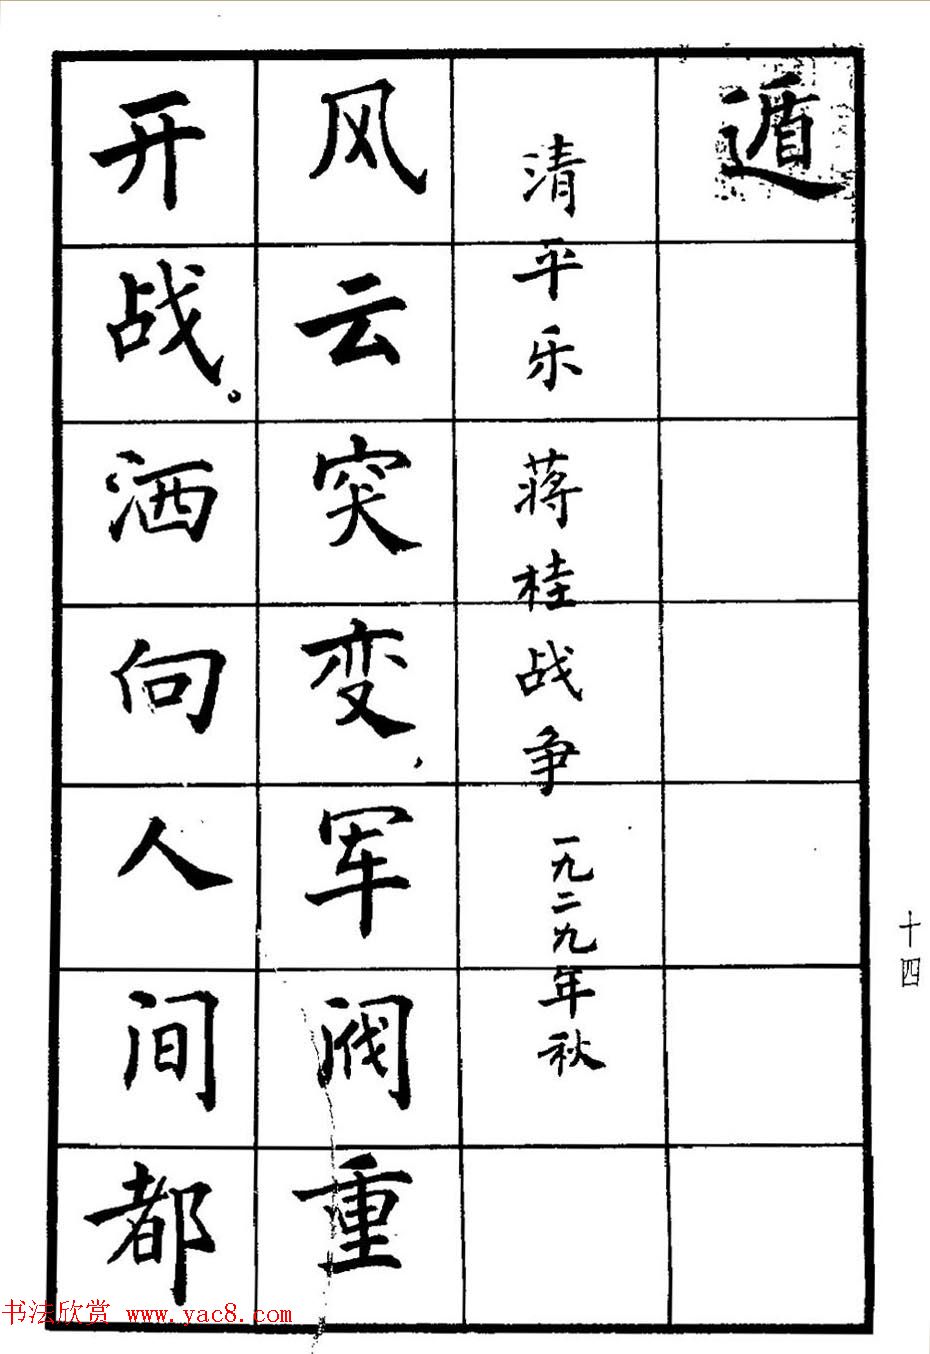 遁
清平乐 蒋桂战争 一九二九年秋
风云突变,军阀重
开战。洒向人间都
十四
书法欣赏 www.yac8.com